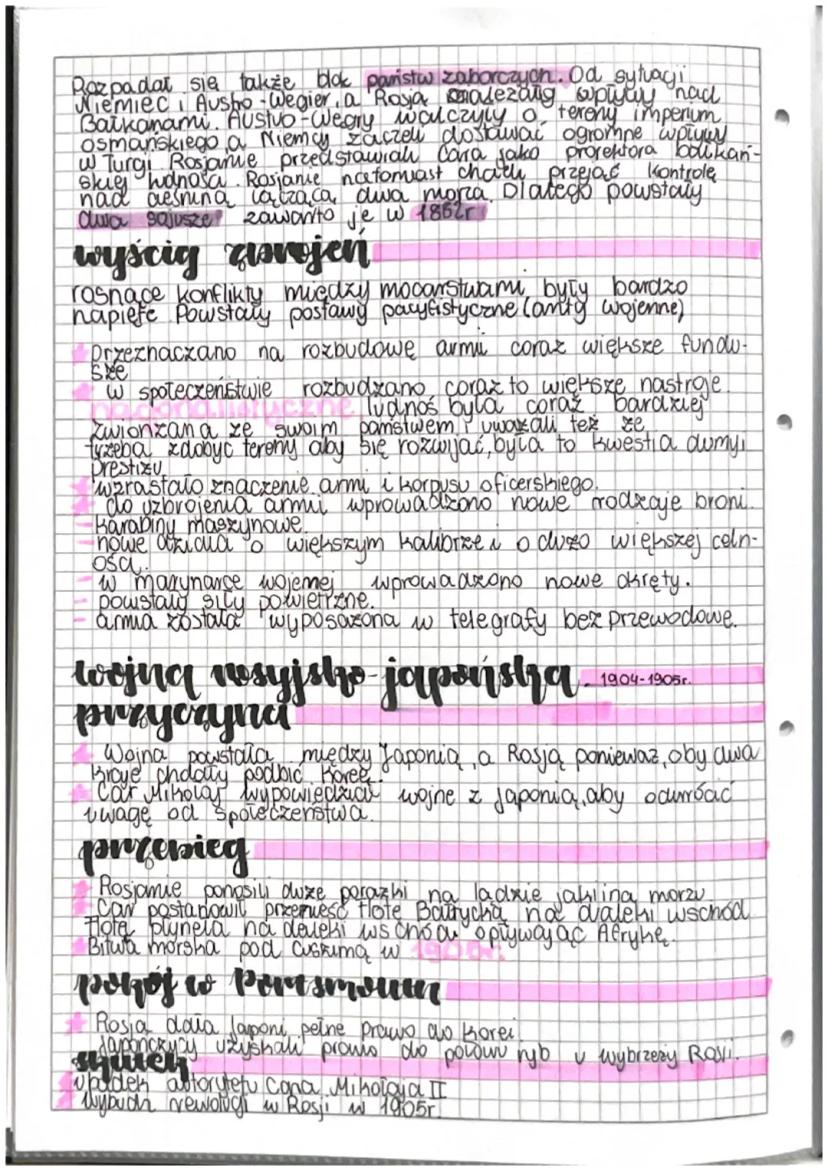 Rozpadał się także blok państw zaborczych. Od sytuacji
Niemiec i Austro-Węgier, a Rosją należały wpływy nad
Bałkanami. Austro-Węgry walczyły o tereny imperium
osmańskiego a Niemcy zaczeli dostawać ogromne wpływy
w Turcji. Rosjanie przedstawiali Cara jako protektora bałkań-
skiej ludnośa. Rosjanie natomiast chcieli przejąć kontrolę
nad cieśniną łączącą dwa morza. Dlatego powstały
dwa sojusze zawarto je w 1882r
wyścig zbrojeń
rosnące konflikty między mocarstwami były bardzo
napięte Powstały postawy pacyfistyczne (anty wojenne)
Przeznaczano na rozbudowę armii coraz większe fundu-
sze
w społeczeństwie rozbudzano coraz to większe nastroje
nacjonalistyczne ludnoś była coraz bardziej
zwionzana ze swoim państwem, uważali też że
trzeba zdobyć tereny aby się rozwijać, była to kwestia dumy i
prestiżu
wzrastało znaczenie armi i korpusu oficerskiego.
do uzbrojenia armii wprowadzono nowe rodzaje broni.
- karabiny maszynowe
- nowe działa o większym kalibrze i o dużo większej celn-
ośa.
- w marynarce wojennej wprowadzono nowe okręty.
- powstały siły powietrzne.
- armia została wyposażona w telegrafy bez przewodowe.
wojna rosyjsko-japońska 1904-1905r.
przyczyna
Wojna powstała między Japonią, a Rosją ponieważ, oby dwa
kraje chciały podbić Koreę.
Car Mikołaj wypowiedział wojne z Japonią, aby odwróać
uwagę od społeczeństwa.
przebieg
Rosjanie ponosili duże porażki na lądzie jak i na morzu
Car postanowił przenieść flotę Bałtycką na daleki wschód
flota płyneła na daleki wschód opływając Afrykę.
Bitwa morska pod Cuszimą w 1905r.
pokój w Portsmouth
Rosja dała Japoni pełne prawo do Korei
Japończycy uzyskali prawo do połowu ryb u wybrzeży Rosji.
skutek
upadek autorytetu Cara Mikołaja II
wybuch rewolucji w Rosji w 1905r